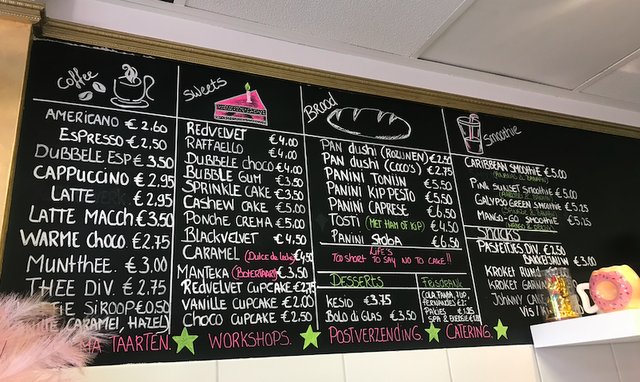 Coffee
AMERICANO €2.60
ESPRESSO €2,50
DUBBELE ESP €3.50
CAPPUCCINO €2,95
LATTE €2,95
LATTE MACCH €3,50
WARME CHOCO. €2.75
MUNTTHEE. €3.00
THEE DIV. €2.75
SIROOP €0.50
CARAMEL, HAZEL
Sweets
REDVELVET €4,00
RAFFAELLO €4,00
DUBBELE CHOCO €4,00
BUBBLE GUM €3,50
SPRINKLE CAKE €3,50
CASHEW CAKE €5.00
PONCHE CREMA €5.00
BLACKVELVET €4,50
CARAMEL (Dulce de leche) €4,50
MANTEKA (BOTERTAART) €3,50
REDVELVET CUPCAKE €2,75
VANILLE CUPCAKE €2,00
CHOCO CUPCAKE €2,50
Brood
PAN dushi (ROZIJNEN) €2,50
PAN dushi (COCO'S) €2,75
PANINI TONIJN €5,50
PANINI KIP PESTO €5,50
PANINI CAPRESE €6,50
TOSTI (MET HAM OF KIP) €4,50
PANINI SKOBA €6.50
LIFE'S
TOO SHORT TO SAY NO TO CAKE!!
DESSERTS
KESIO €3.75
BOLO di GLAS €3,50
FRISDRANK
COLA, FANTA, 7UP,
FERNANDES €2.-
Smoothie
CARIBBEAN SMOOTHIE €5.00
PINK SUNSET SMOOTHIE €5.00
CALYPSO GREEN SMOOTHIE €5.25
MANGO-GO SMOOTHIE €5.25
SNACKS
PASTEITJES DIV. €2,50
KROKET
KROKET
JOHNNY CAKE
TAARTEN. WORKSHOPS. POSTVERZENDING. CATERING.